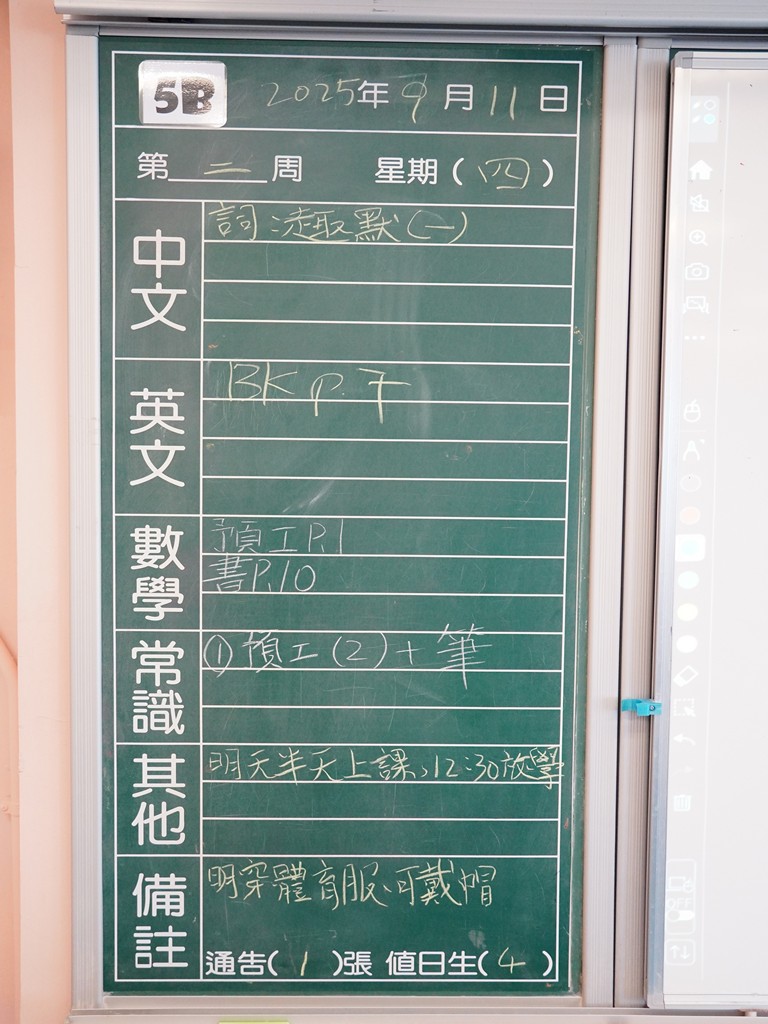 5B 2025年9月11日
第二周 星期(四)
中文
詞:凌取默(一)
英文
BK P.7
數學
預工P.1
書P.10
常識
①預工(2)+筆
其他
明天半天上課,12:30放學
備註
明穿體育服,可戴帽
通告(1)張 值日生(4)
OFF